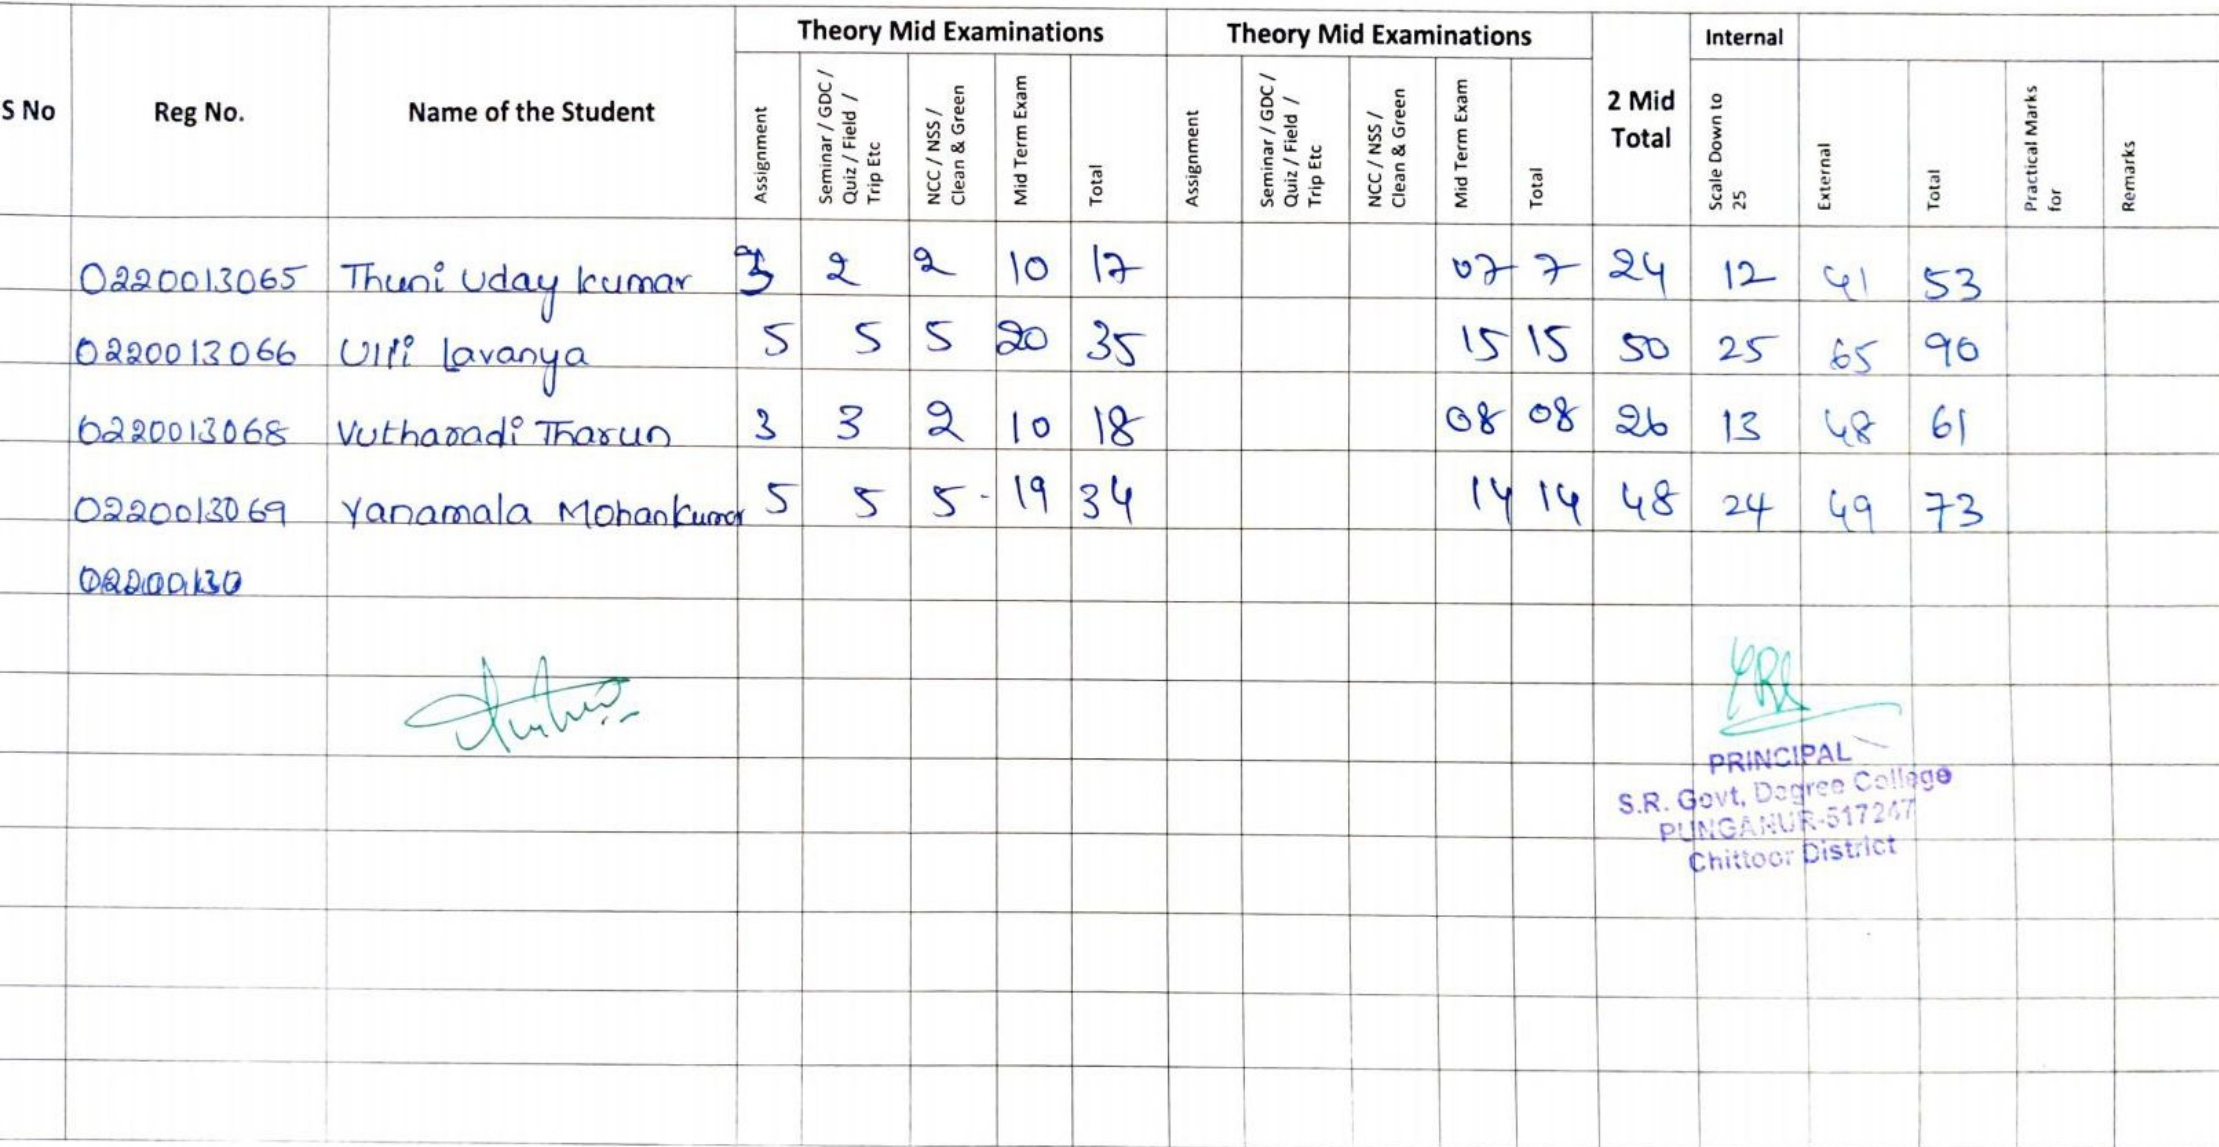 Theory Mid Examinations Theory Mid Examinations Internal
S No Reg No. Name of the Student Assignment Seminar / GDC / Quiz / Field / Trip Etc NCC / NSS / Clean & Green Mid Term Exam Total Assignment Seminar / GDC / Quiz / Field / Trip Etc NCC / NSS / Clean & Green Mid Term Exam Total 2 Mid Total Scale Down to 25 External Total Practical Marks for Remarks
0220013065 Thuni Uday kumar 3 2 2 10 17 07 7 24 12 41 53
0220013066 Ulli Lavanya 5 5 5 20 35 15 15 50 25 65 90
0220013068 Vutharadi Tharun 3 3 2 10 18 08 08 26 13 48 61
0220013069 Yanamala Mohankumar 5 5 5 19 34 14 14 48 24 49 73
02200130
PRINCIPAL
S.R. Govt, Degree College
PUNGANUR-517247
Chittoor District